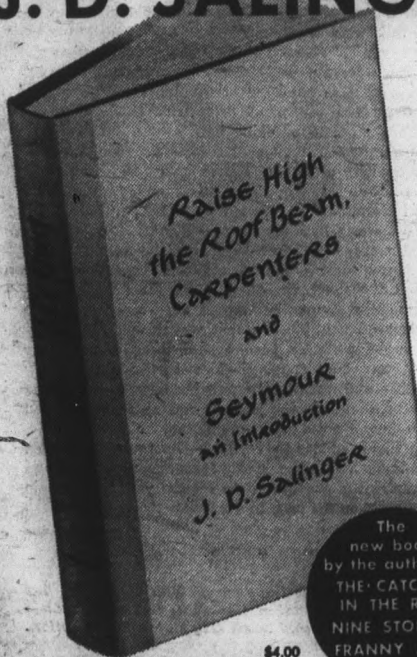 J. D. SALING
Raise High
the Roof Beam,
Carpenters
and
Seymour
an Introduction
J. D. Salinger
The
new boo
by the auth
THE CATC
IN THE R
NINE STO
FRANNY
$4.00